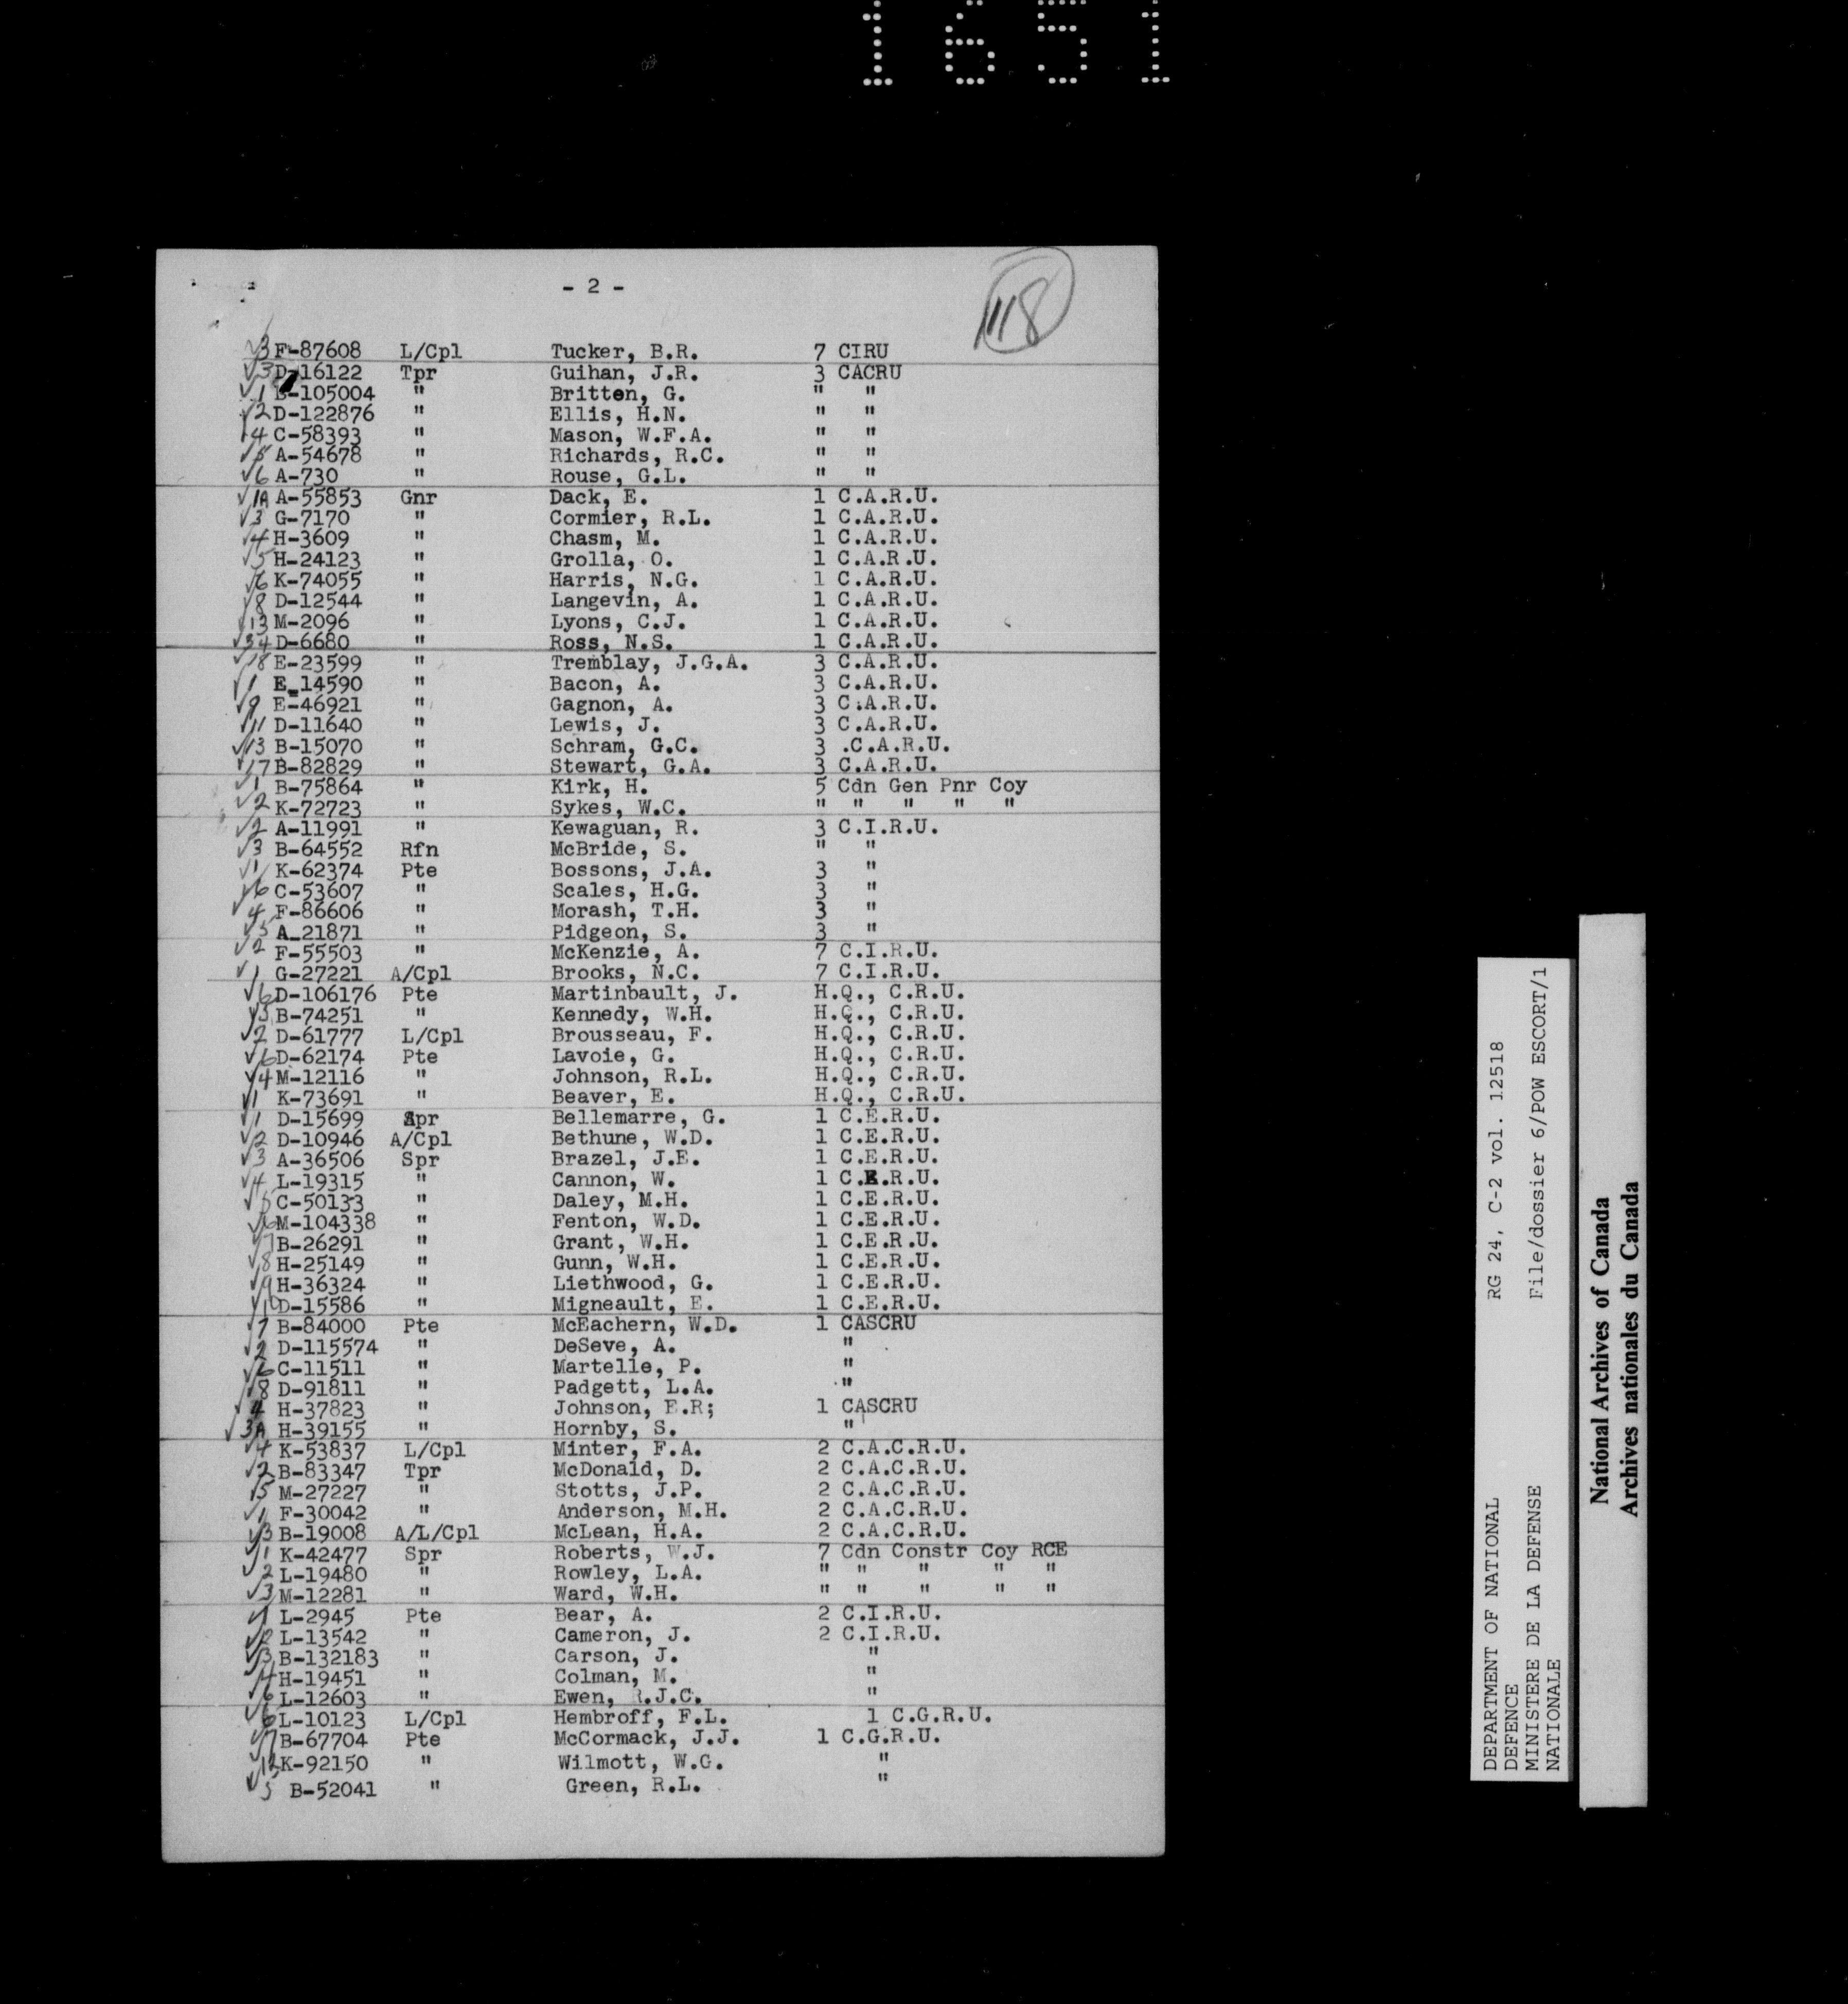 1651
- 2 -
118
3 F-87608 L/Cpl Tucker, B.R. 7 CIRU
3 D-16122 Tpr Guihan, J.R. 3 CACRU
1 B-105004 " Britten, G. " "
2 D-122876 " Ellis, H.N. " "
4 C-58393 " Mason, W.F.A. " "
5 A-54678 " Richards, R.C. " "
6 A-730 " Rouse, G.L. " "
1A A-55853 Gnr Dack, E. 1 C.A.R.U.
3 G-7170 " Cormier, R.L. 1 C.A.R.U.
4 H-3609 " Chasm, M. 1 C.A.R.U.
5 H-24123 " Grolla, O. 1 C.A.R.U.
6 K-74055 " Harris, N.G. 1 C.A.R.U.
8 D-12544 " Langevin, A. 1 C.A.R.U.
13 M-2096 " Lyons, C.J. 1 C.A.R.U.
34 D-6680 " Ross, N.S. 1 C.A.R.U.
18 E-23599 " Tremblay, J.G.A. 3 C.A.R.U.
1 E-14590 " Bacon, A. 3 C.A.R.U.
9 E-46921 " Gagnon, A. 3 C.A.R.U.
11 D-11640 " Lewis, J. 3 C.A.R.U.
13 B-15070 " Schram, G.C. 3 .C.A.R.U.
17 B-82829 " Stewart, G.A. 3 C.A.R.U.
1 B-75864 " Kirk, H. 5 Cdn Gen Pnr Coy
2 K-72723 " Sykes, W.C. " " " " "
2 A-11991 " Kewaguan, R. 3 C.I.R.U.
3 B-64552 Rfn McBride, S. " "
1 K-62374 Pte Bossons, J.A. 3 "
6 C-53607 " Scales, H.G. 3 "
4 F-86606 " Morash, T.H. 3 "
5 A-21871 " Pidgeon, S. 3 "
2 F-55503 " McKenzie, A. 7 C.I.R.U.
1 G-27221 A/Cpl Brooks, N.C. 7 C.I.R.U.
6 D-106176 Pte Martinbault, J. H.Q., C.R.U.
3 B-74251 " Kennedy, W.H. H.Q., C.R.U.
2 D-61777 L/Cpl Brousseau, F. H.Q., C.R.U.
6 D-62174 Pte Lavoie, G. H.Q., C.R.U.
4 M-12116 " Johnson, R.L. H.Q., C.R.U.
1 K-73691 " Beaver, E. H.Q., C.R.U.
1 D-15699 Spr Bellemarre, G. 1 C.E.R.U.
2 D-10946 A/Cpl Bethune, W.D. 1 C.E.R.U.
3 A-36506 Spr Brazel, J.E. 1 C.E.R.U.
4 L-19315 " Cannon, W. 1 C.E.R.U.
5 C-50133 " Daley, M.H. 1 C.E.R.U.
6 M-104338 " Fenton, W.D. 1 C.E.R.U.
7 B-26291 " Grant, W.H. 1 C.E.R.U.
8 H-25149 " Gunn, W.H. 1 C.E.R.U.
9 H-36324 " Liethwood, G. 1 C.E.R.U.
10 D-15586 " Migneault, E. 1 C.E.R.U.
7 B-84000 Pte McEachern, W.D. 1 CASCRU
2 D-115574 " DeSeve, A. "
6 C-11511 " Martelle, P. "
8 D-91811 " Padgett, L.A. "
4 H-37823 " Johnson, E.R; 1 CASCRU
3A H-39155 " Hornby, S. "
4 K-53837 L/Cpl Minter, F.A. 2 C.A.C.R.U.
2 B-83347 Tpr McDonald, D. 2 C.A.C.R.U.
5 M-27227 " Stotts, J.P. 2 C.A.C.R.U.
1 F-30042 " Anderson, M.H. 2 C.A.C.R.U.
3 B-19008 A/L/Cpl McLean, H.A. 2 C.A.C.R.U.
1 K-42477 Spr Roberts, W.J. 7 Cdn Constr Coy RCE
2 L-19480 " Rowley, L.A. " " " " "
3 M-12281 " Ward, W.H. " " " " "
1 L-2945 Pte Bear, A. 2 C.I.R.U.
2 L-13542 " Cameron, J. 2 C.I.R.U.
3 B-132183 " Carson, J. "
4 H-19451 " Colman, M. "
6 L-12603 " Ewen, R.J.C. "
6 L-10123 L/Cpl Hembroff, F.L. 1 C.G.R.U.
7 B-67704 Pte McCormack, J.J. 1 C.G.R.U.
K-92150 " Wilmott, W.G. "
5 B-52041 " Green, R.L. "
DEPARTMENT OF NATIONAL
DEFENCE
MINISTERE DE LA DEFENSE
NATIONALE
RG 24, C-2 vol. 12518
File/dossier 6/POW ESCORT/1
National Archives of Canada
Archives nationales du Canada